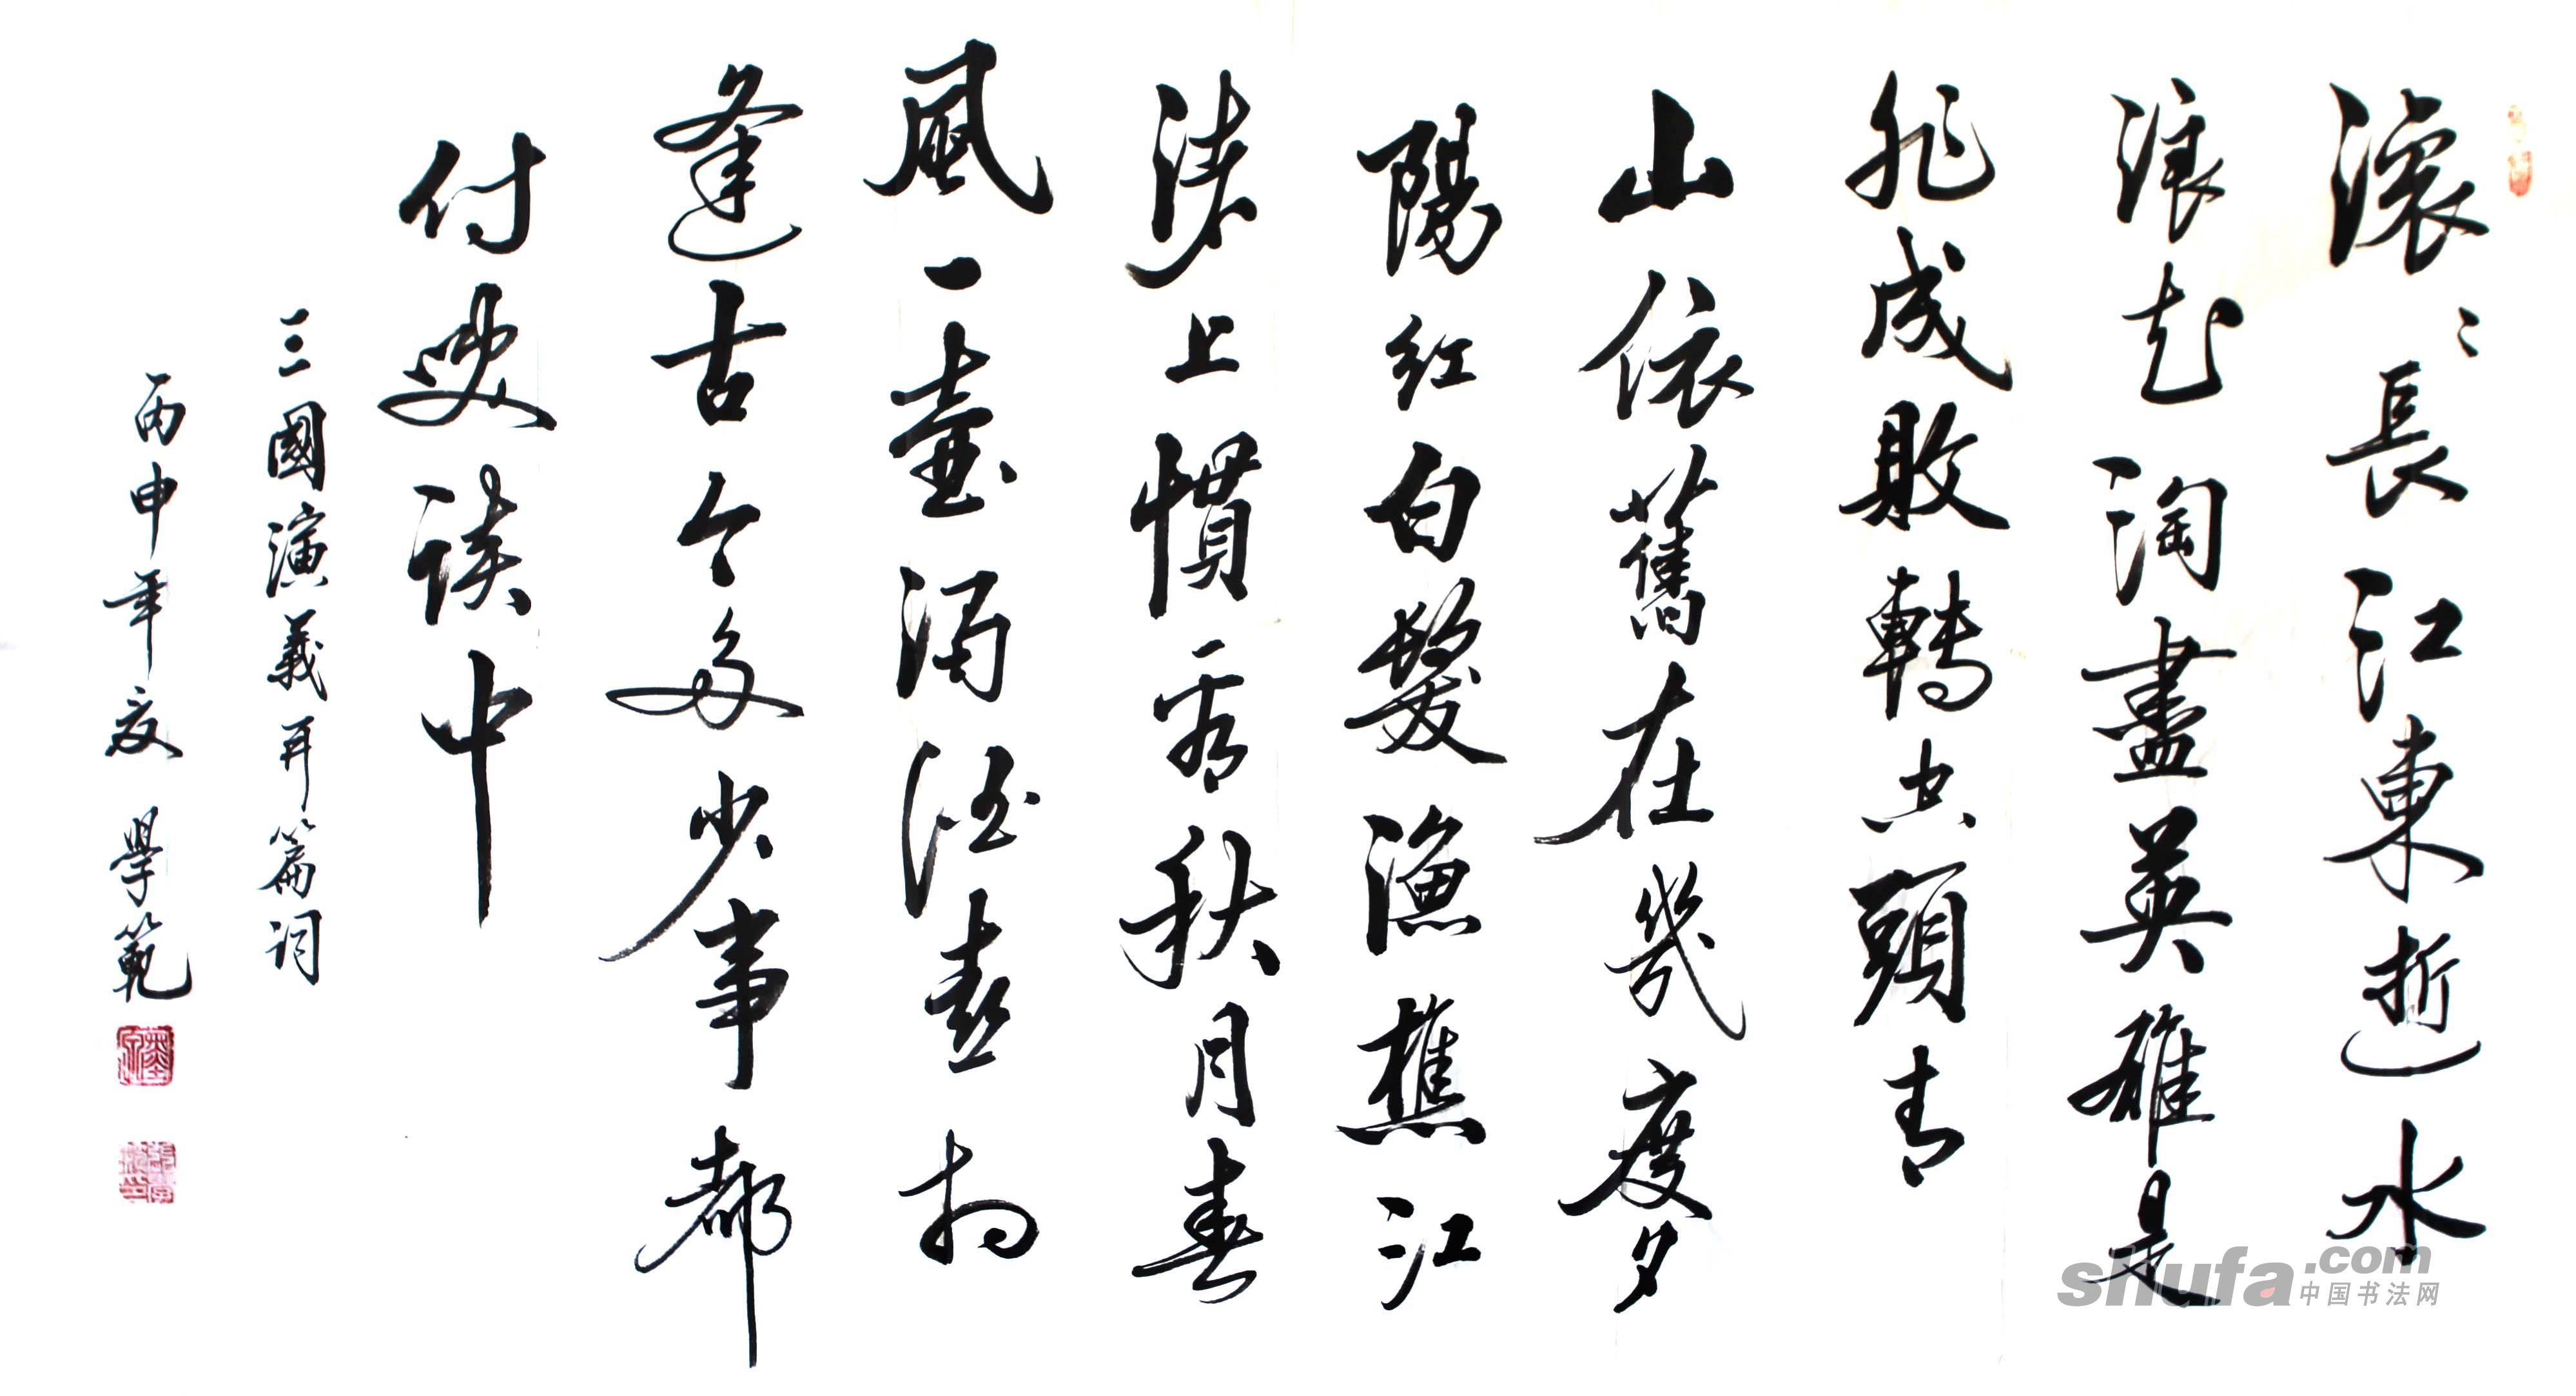 滚〻長江東逝水
浪花淘盡英雄是
非成敗轉空頭青
山依舊在幾度夕
陽红白髮漁樵江
渚上慣看秋月春
風一壺濁酒喜相
逢古今多少事都
付笑談中
三國演義开篇詞
丙申年夏 學範
shufa.com
中国书法网